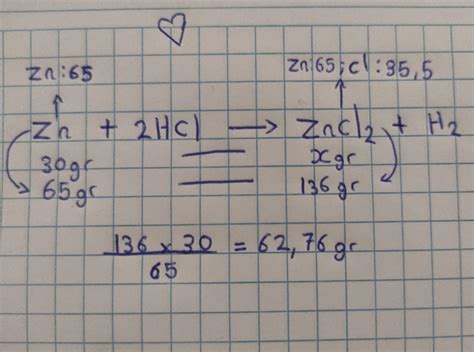 Zn:65 Zn:65;Cl:35,5
Zn + 2HCl → ZnCl₂ + H₂
30gr xgr
65gr 136gr
136 x 30
65
= 62,76gr